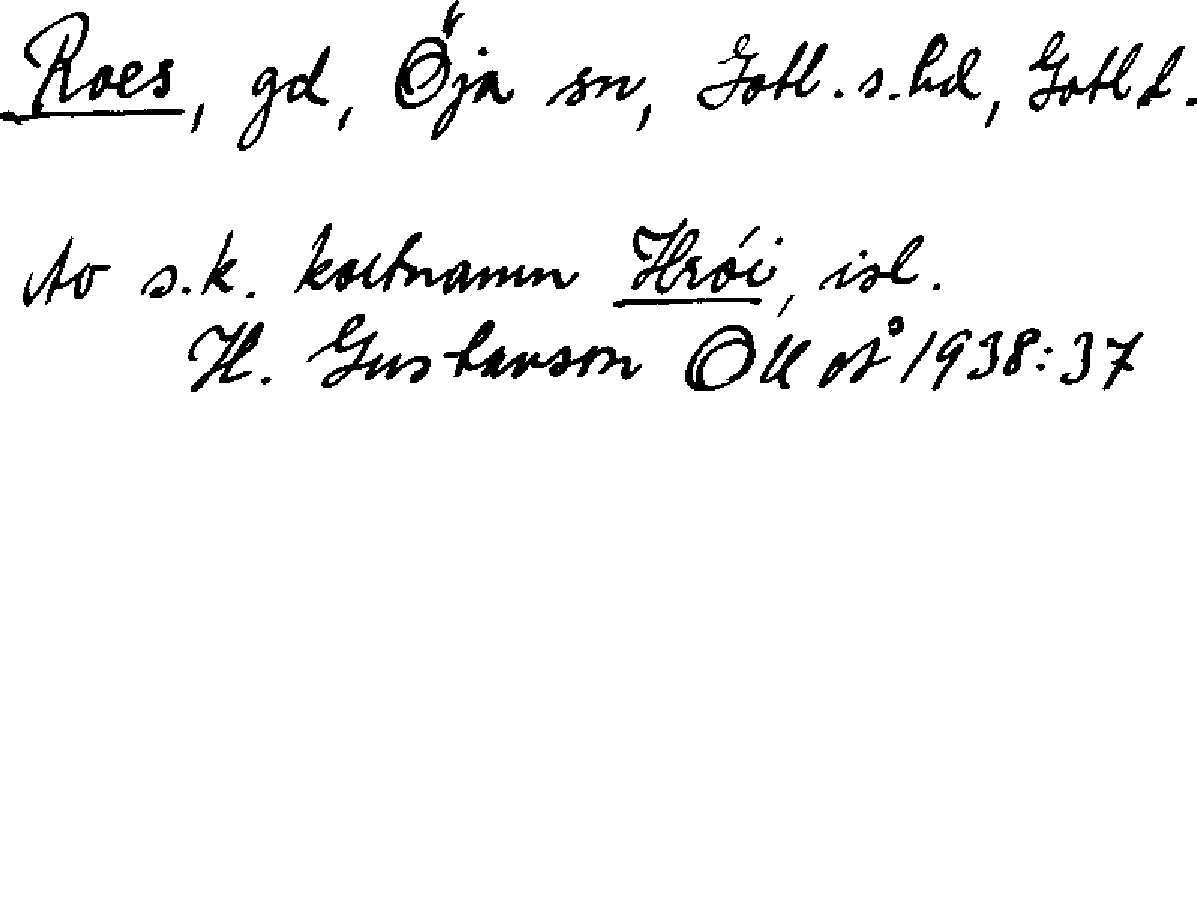 Roes, gd, Öja sn, Gotl. s. hd, Gotl l.
Av s.k. kortnamn Hrói, isl.
H. Gustavson OU å 1938:37